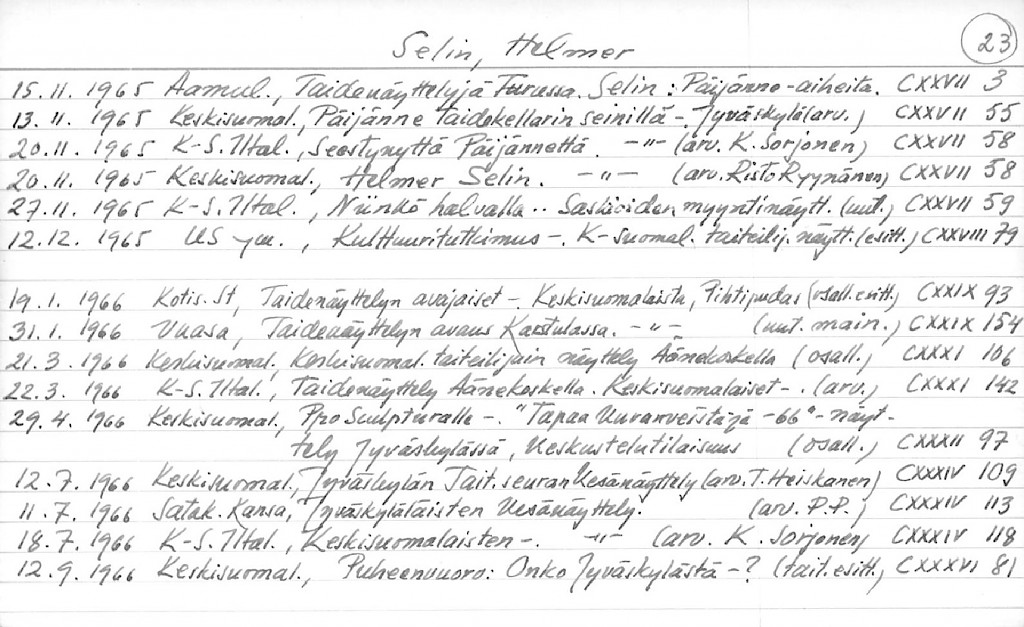 23
Selin, Helmer
15.11.1965 Aamul., Taidenäyttelyjä Turussa. Selin: Päijänne-aiheita. CXXVII 3
13.11.1965 Keskisuomal., Päijänne taidekellarin seinillä -. Jyväskylä (arv.) CXXVII 55
20.11.1965 K-S. Iltal., Seestynyttä Päijännettä. -"- (arv. K. Sorjonen) CXXVII 58
20.11.1965 Keskisuomal., Helmer Selin. -"- (arv. Risto Ryynänen) CXXVII 58
27.11.1965 K-S. Iltal., Niinkö halvalla.. Saskioiden myyntinäytt. (uut.) CXXVII 59
12.12.1965 US , Kulttuuritutkimus -. K-Suomal. taiteilij. näytt. (esitt.) CXXVIII 79
19.1.1966 Kotis. St, Taidenäyttelyn avajaiset -. Keskisuomalaista, Pihtipudas (osall. esitt.) CXXIX 93
31.1.1966 Vaasa, Taidenäyttelyn avaus Karstulassa. -"- (uut. main.) CXXIX 154
21.3.1966 Keskisuomal. Keskisuomal. taiteilijain näyttely Äänekoskella (osall.) CXXXI 106
22.3.1966 K-S. Iltal., Taidenäyttely Äänekoskella. Keskisuomalaiset -. (arv.) CXXXI 142
29.4.1966 Keskisuomal., Pro Sculpturalla -. "Tapaa Kuvanveistäjä -66"- näyt-
tely Jyväskylässä, Keskustelutilaisuus (osall.) CXXXII 97
12.7.1966 Keskisuomal., Jyväskylän Tait. seuran Kesänäyttely (arv. T. Heiskanen) CXXXIV 109
11.7.1966 Satak. Kansa, Jyväskyläläisten Kesänäyttely. (arv. P.P.) CXXXIV 113
18.7.1966 K-S. Iltal., Keskisuomalaisten -. -"- (arv. K. Sorjonen) CXXXIV 118
12.9.1966 Keskisuomal., Puheenvuoro: Onko Jyväskylästä -? (tait. esitt.) CXXXVI 81